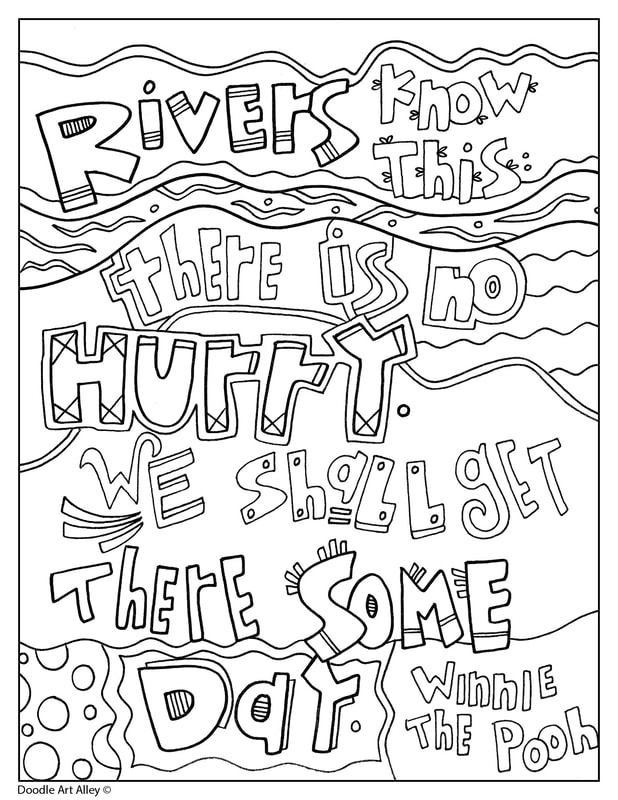 Rivers Know
This:
there is no
Hurry.
We shall get
There Some
Day.
Winnie
The Pooh
Doodle Art Alley ©